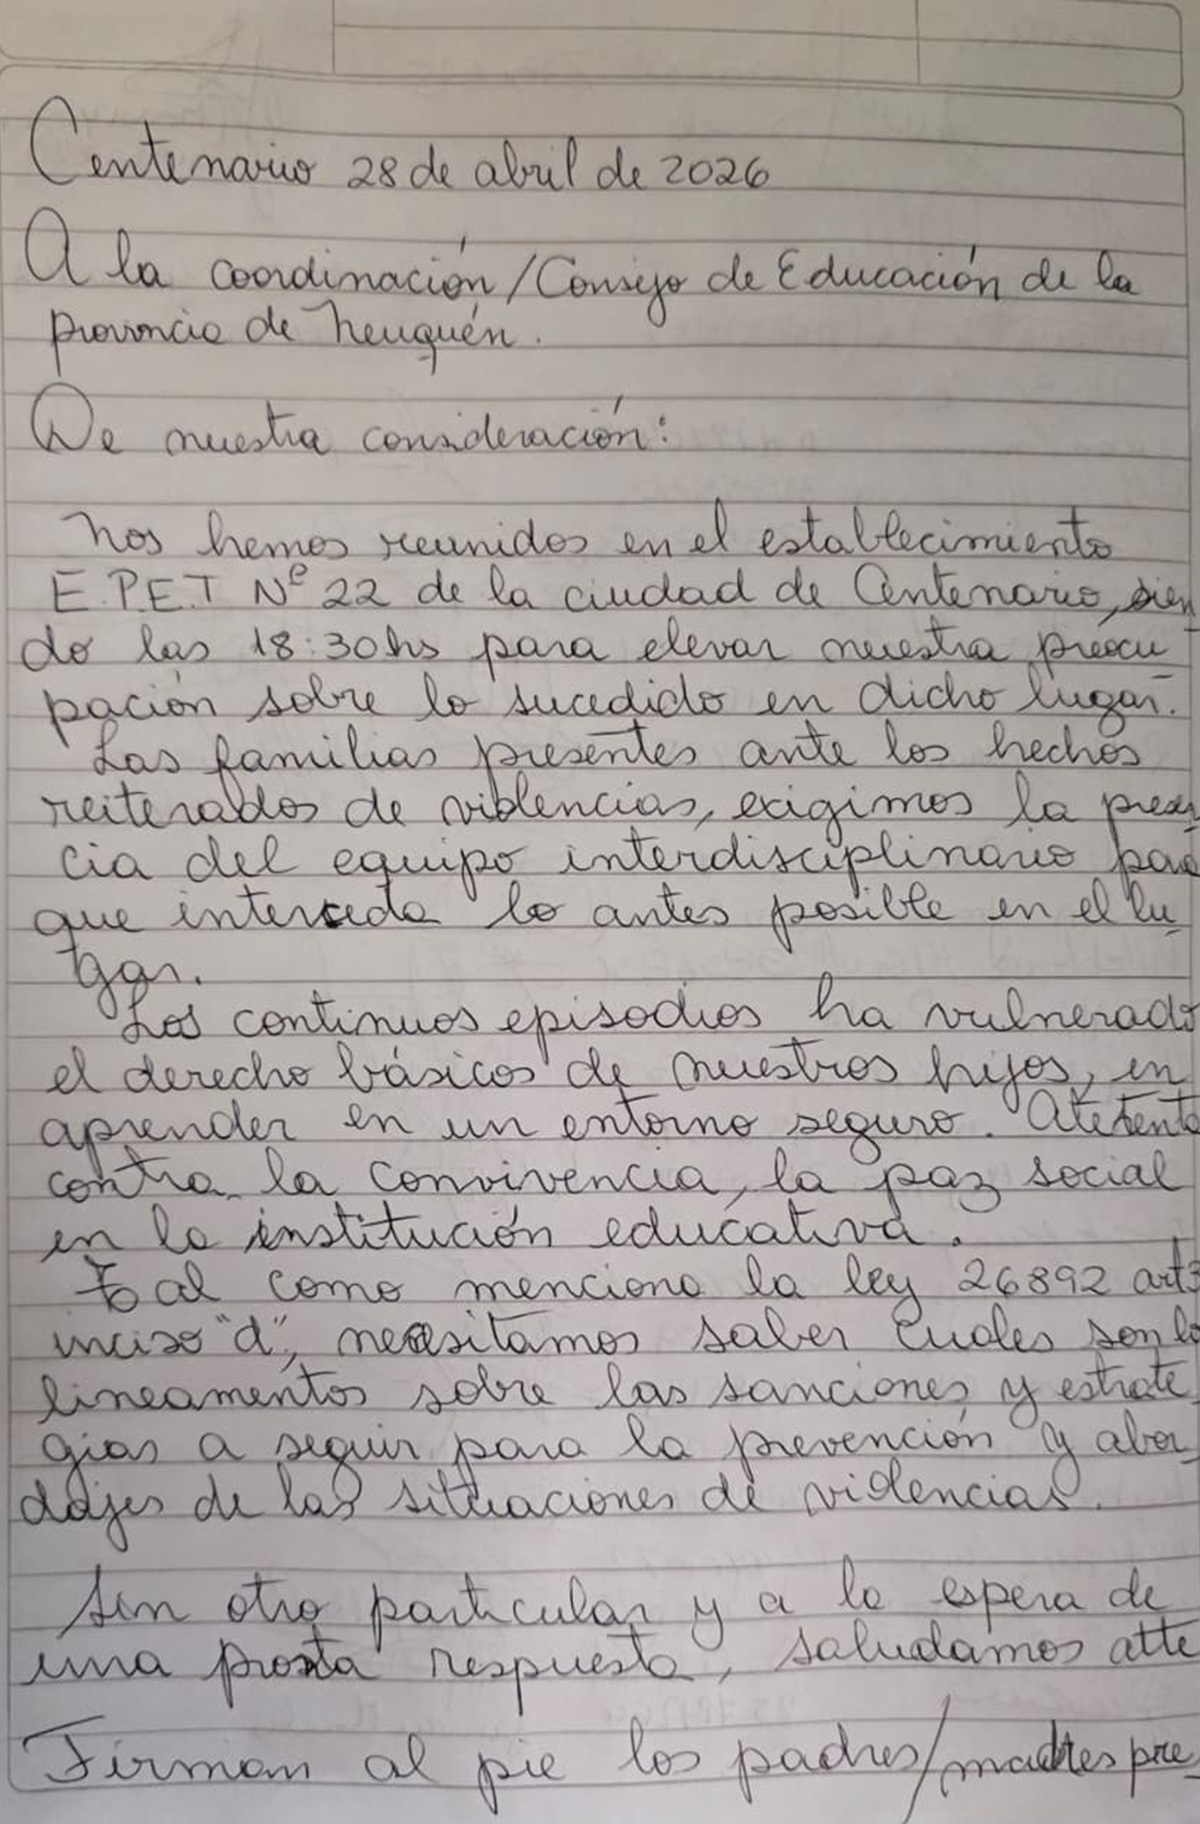 Centenario 28 de abril de 2026
A la coordinación/Consejo de Educación de la
provincia de Neuquén.
De nuestra consideración:
Nos hemos reunidos en el establecimiento
E.P.E.T Nº 22 de la ciudad de Centenario, sien
do las 18:30hs para elevar nuestra preocu
pación sobre lo sucedido en dicho lugar.
Las familias presentes ante los hechos
reiterados de violencias, exigimos la presen
cia del equipo interdisciplinario para
que interceda lo antes posible en el lu
gar.
Los continuos episodios ha vulnerado
el derecho básicos de nuestros hijos, en
aprender en un entorno seguro. Atetenta
contra la convivencia, la paz social
en la institución educativa.
Tal como menciona la ley 26892 art3
inciso "d", necesitamos saber cuales son lo
lineamentos sobre las sanciones y estrate
gias a seguir para la prevención y abor-
dajes de las situaciones de violencias.
Sin otro particular y a la espera de
una prosta respuesta, saludamos atte
Firman al pie los padres/madres pre-